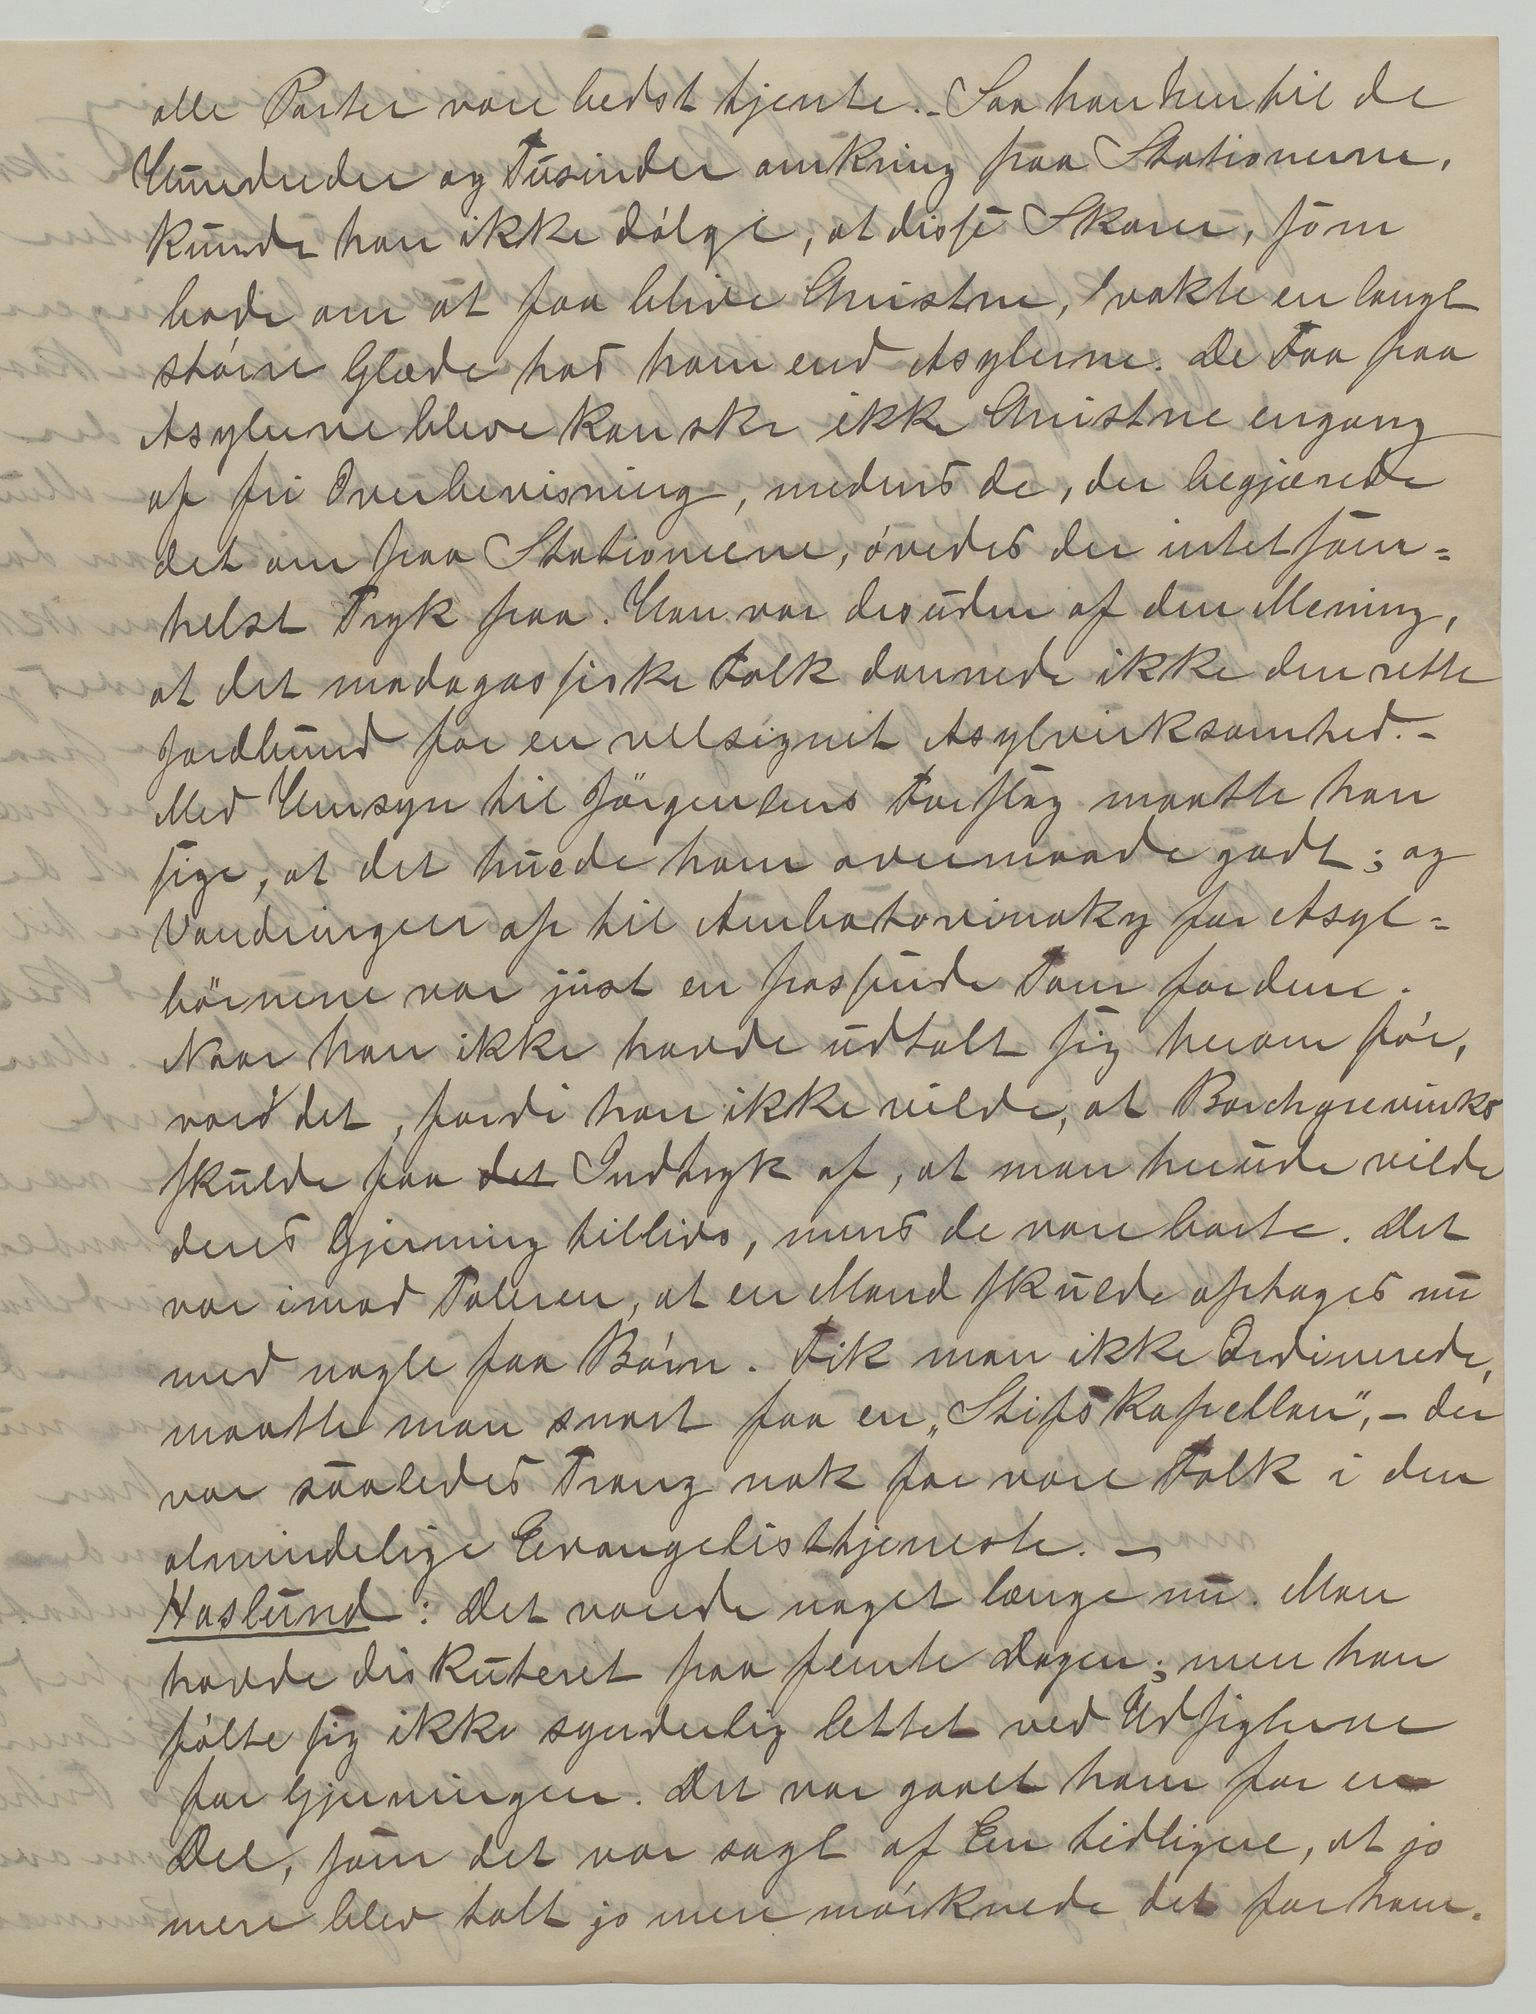 alle Parter vare bedst tjente. – Saa han hen til de
Hundreder og Tusinder omkring paa Stationerne,
kunde han ikke dölge, at disse Skarer, som
bade om at faa blive Christne, vakte en langt
större Glæde hos ham end Asylerne. De Faa paa
Asylerne bleve kanske ikke Christne engang
af fri Overbevisning, medens de, der begjærede
det om paa Stationerne, övedes der intet som=
helst Tryk paa. Han var desuden af den Mening,
at det madagassiske Folk dannede ikke den rette
Jordbund for en velsignet Asylvirksomhed. –
Med Hensyn til Jörgensens Forslag maatte han
sige, at det huede ham overmaade godt; og
Vandringen op til Ambatovinaky for Asyl=
börnene var just en passende Tour for dem.
Naar han ikke havde udtalt sig herom för,
var det, fordi han ikke vilde, at Borchgrevinks
skulde faa det Indtryk af, at man herude vilde
deres Gjerning tillivs, mens de vare borte. Det
var imod Taleren, at en Mand skulde optages nu
med nogle faa Börn. Fik man ikke Ordinerede,
maatte man snart faa en „Stifskapellan", – der
var saaledes Trang nok for vore Folk i den
almindelige Evangelisttjeneste. –
Haslund: Det varede noget længe nu. Man
havde diskuteret paa femte Dagen; men han
fölte sig ikke synderlig lettet ved Udsigterne
for Gjerningen. Det var gaaet ham for en
Del, som det var sagt af En tidligere, at jo
mere blev talt jo mere mörknede det for ham.